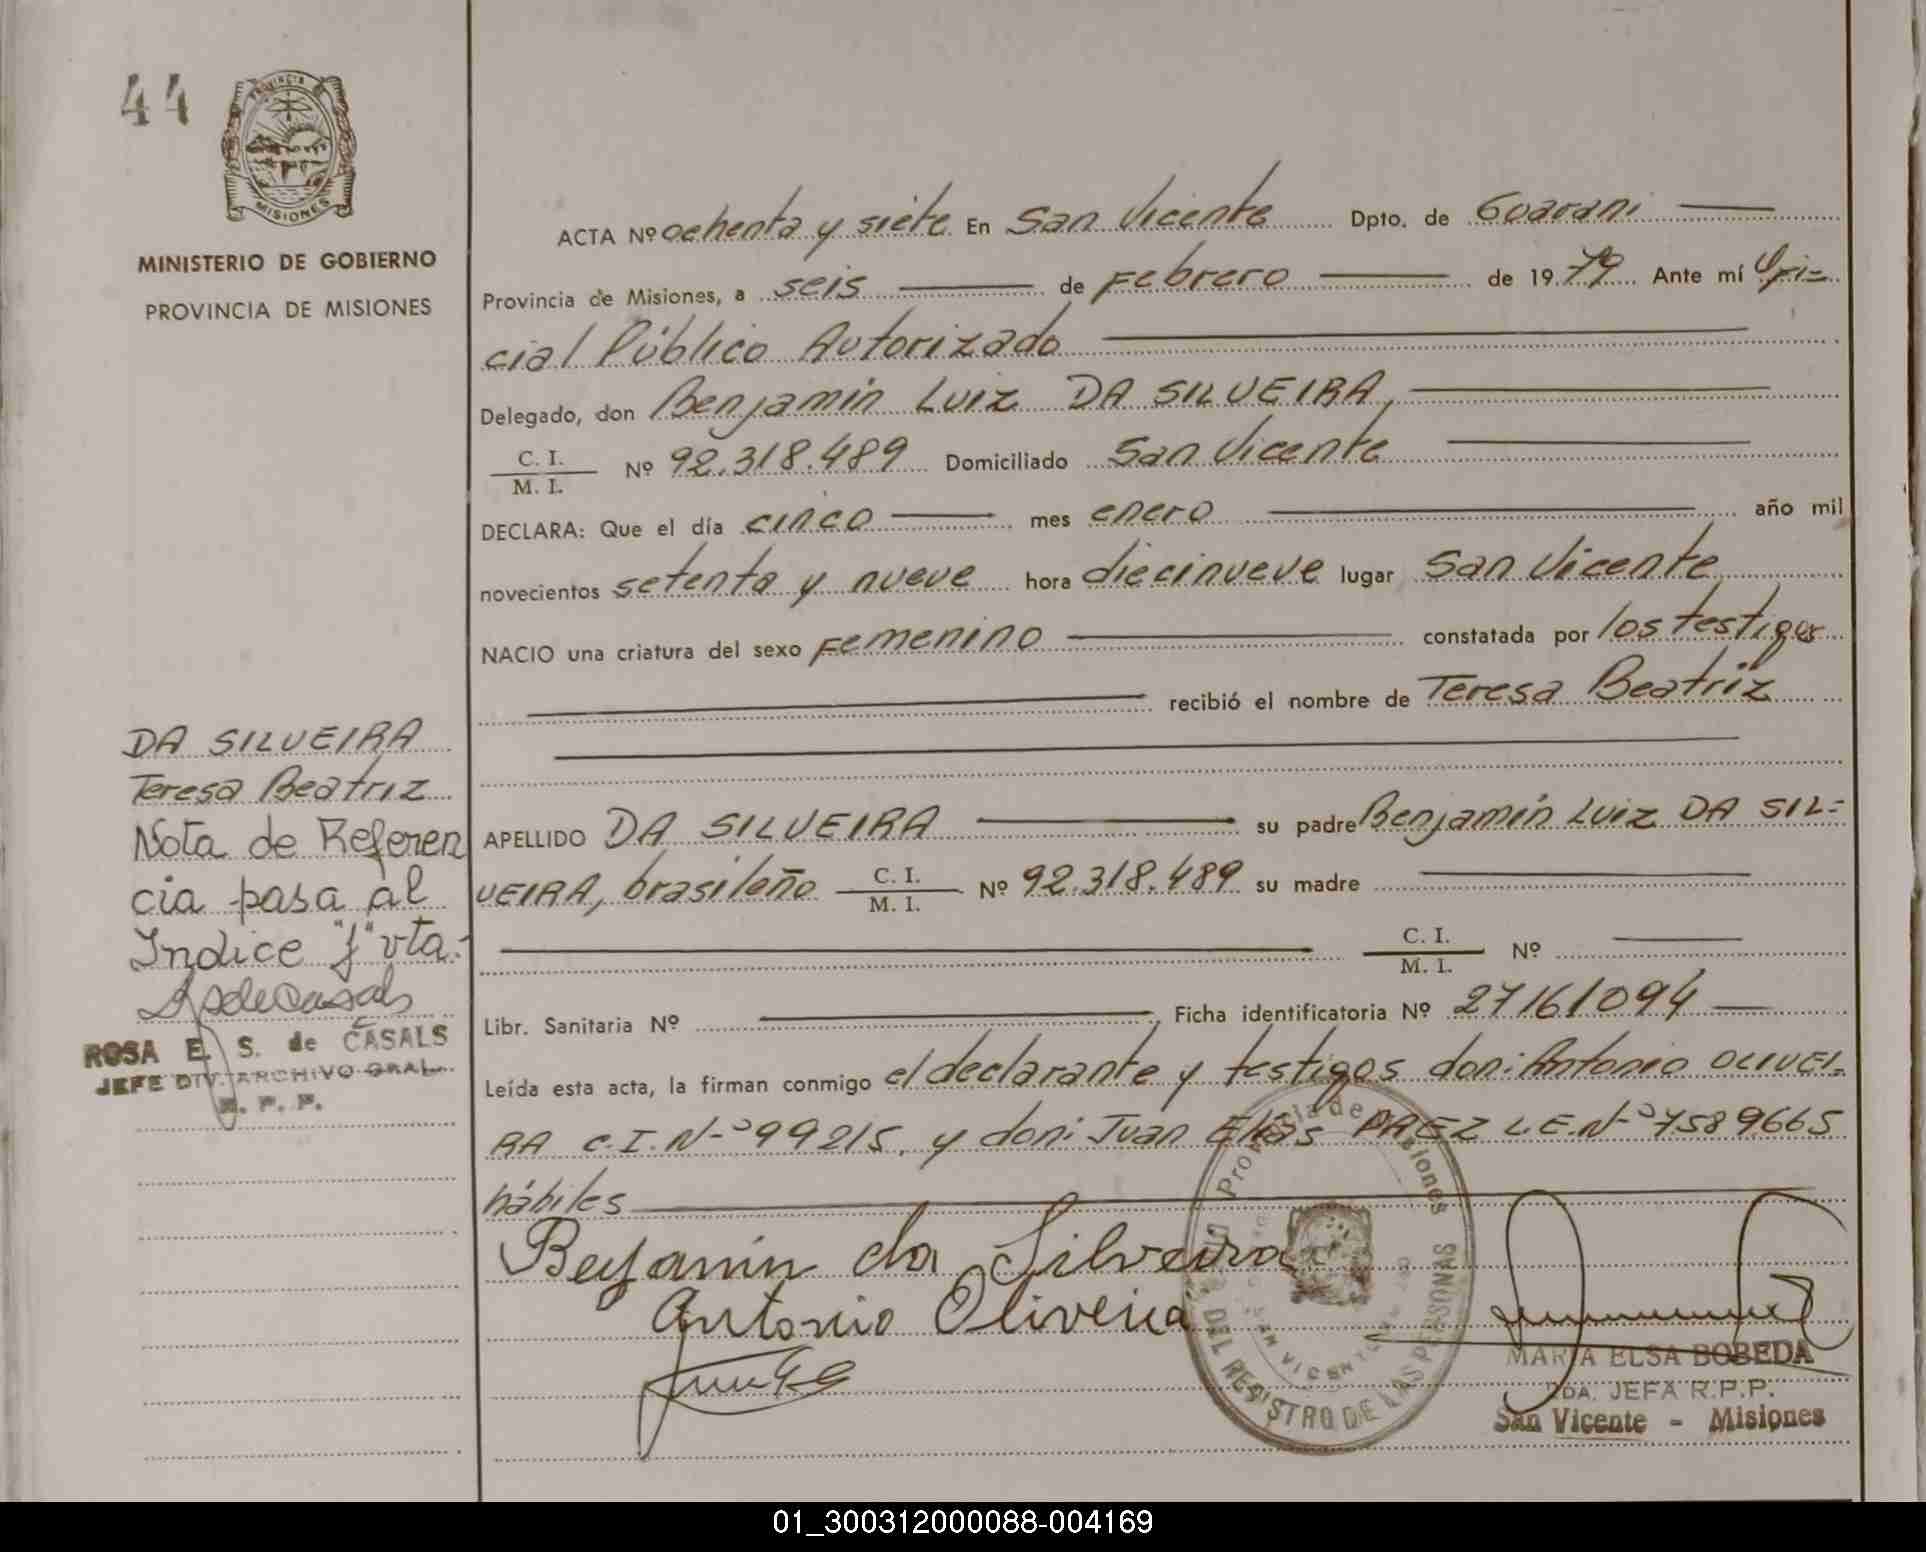 44
PROVINCIA
MISIONES
MINISTERIO DE GOBIERNO
PROVINCIA DE MISIONES
ACTA Nº ochenta y siete En San Vicente Dpto. de Guarani
Provincia de Misiones, a seis de Febrero de 1979 Ante mí Ofi=
cial Público Autorizado
Delegado, don Benjamín Luiz DA SILVEIRA,
C. I.
M. I.
Nº 92.318.489 Domiciliado San Vicente
DECLARA: Que el día cinco mes enero año mil
novecientos setenta y nueve hora diecinueve lugar San Vicente
NACIO una criatura del sexo Femenino constatada por los testigos
recibió el nombre de Teresa Beatriz
APELLIDO DA SILVEIRA su padre Benjamín Luiz DA SIL=
VEIRA, brasileño C. I. M. I. Nº 92.318.489 su madre
C. I.
M. I.
Nº
Libr. Sanitaria Nº , Ficha identificatoria Nº 27161094
Leída esta acta, la firman conmigo el declarante y testigos don: Antonio OLIVEI=
RA C.I.Nº 99215, y don: Juan Elías PAEZ L.E.Nº 7589665
hábiles
Benjamin da Silveira
Antonio Oliveira
DA SILVEIRA
Teresa Beatriz
Nota de Referen
cia pasa al
Indice "f" vta.-
ROSA E. S. de CASALS
JEFE DIV. ARCHIVO GRAL.
R. P. P.
Provincia de Misiones
DEL REGISTRO DE LAS PERSONAS
SAN VICENTE
MARIA ELSA BOBEDA
2DA. JEFA R.P.P.
San Vicente - Misiones
01_300312000088-004169